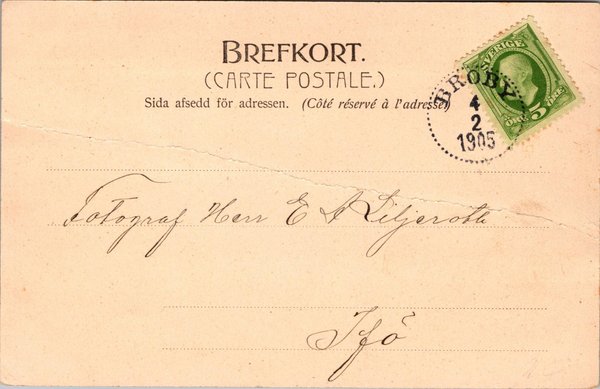 BREFKORT.
(CARTE POSTALE.)
Sida afsedd för adressen. (Côté réservé à l'adresse)
SVERIGE
5
ÖRE ÖRE
BROBY
4
2
1905
Fotograf Herr E A Liljeroth
Ifö